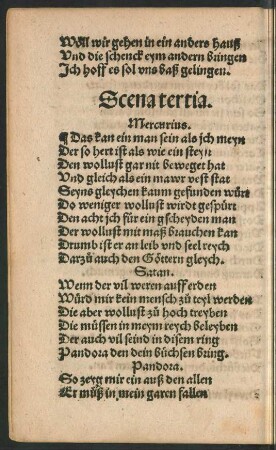 Woll wir gehen in ein anders hauß
Vnd die schenck eym andern bringen
Jch hoff es sol vns baß gelingen.
Scena tertia.
Mercurius.
¶ Das kan ein man sein als jch meyn
Der so hert ist als wie ein steyn
Den wollust gar nit beweget hat
Vnd gleich als ein mawr vest stat
Seyns gleychen kaum gefunden würt
Do weniger wollust wirdt gespürt
Den acht jch für ein gscheyden man
Der wollust mit maß brauchen kan
Drumb ist er an leib vnd seel reych
Darzů auch den Göttern gleych.
Satan.
Wenn der vil weren auff erden
Würd mir kein mensch zů teyl werden
Die aber wollust zů hoch treyben
Die müssen in meym reych beleyben
Der auch vil seind in disem ring
Pandora den dein büchsen bring.
Pandora.
So zeyg mir ein auß den allen
Er můß in mein garen fallen